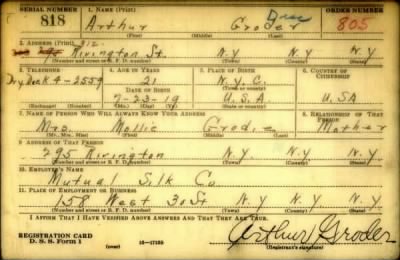 SERIAL NUMBER 1. NAME (Print) ORDER NUMBER
818 Arthur Groder 805
(First) (Middle) (Last)
2. ADDRESS (Print) 312
Rivington St. N.Y N.Y
(Number and street or R. F. D. number) (Town) (County) (State)
3. TELEPHONE 4. AGE IN YEARS 5. PLACE OF BIRTH 6. COUNTRY OF CITIZENSHIP
Dry Dock 4-2559 21 N.Y.C.
DATE OF BIRTH (Town or county)
7-23-19 U.S.A. USA
(Exchange) (Number) (Mo.) (Day) (Yr.) (State or country)
7. NAME OF PERSON WHO WILL ALWAYS KNOW YOUR ADDRESS 8. RELATIONSHIP OF THAT PERSON
Mrs. Mollie Groder Mother
(Mr., Mrs., Miss) (First) (Middle) (Last)
9. ADDRESS OF THAT PERSON
295 Rivington N.Y. N.Y.
(Number and street or R. F. D. number) (Town) (County) (State)
10. EMPLOYER'S NAME
Mutual Silk Co
11. PLACE OF EMPLOYMENT OR BUSINESS
158 West 30 St N.Y. N.Y
(Number and street or R. F. D. number) (Town) (County) (State)
I AFFIRM THAT I HAVE VERIFIED ABOVE ANSWERS AND THAT THEY ARE TRUE.
REGISTRATION CARD
D. S. S. Form 1 (over) 16-17105
Arthur Groder
(Registrant's signature)